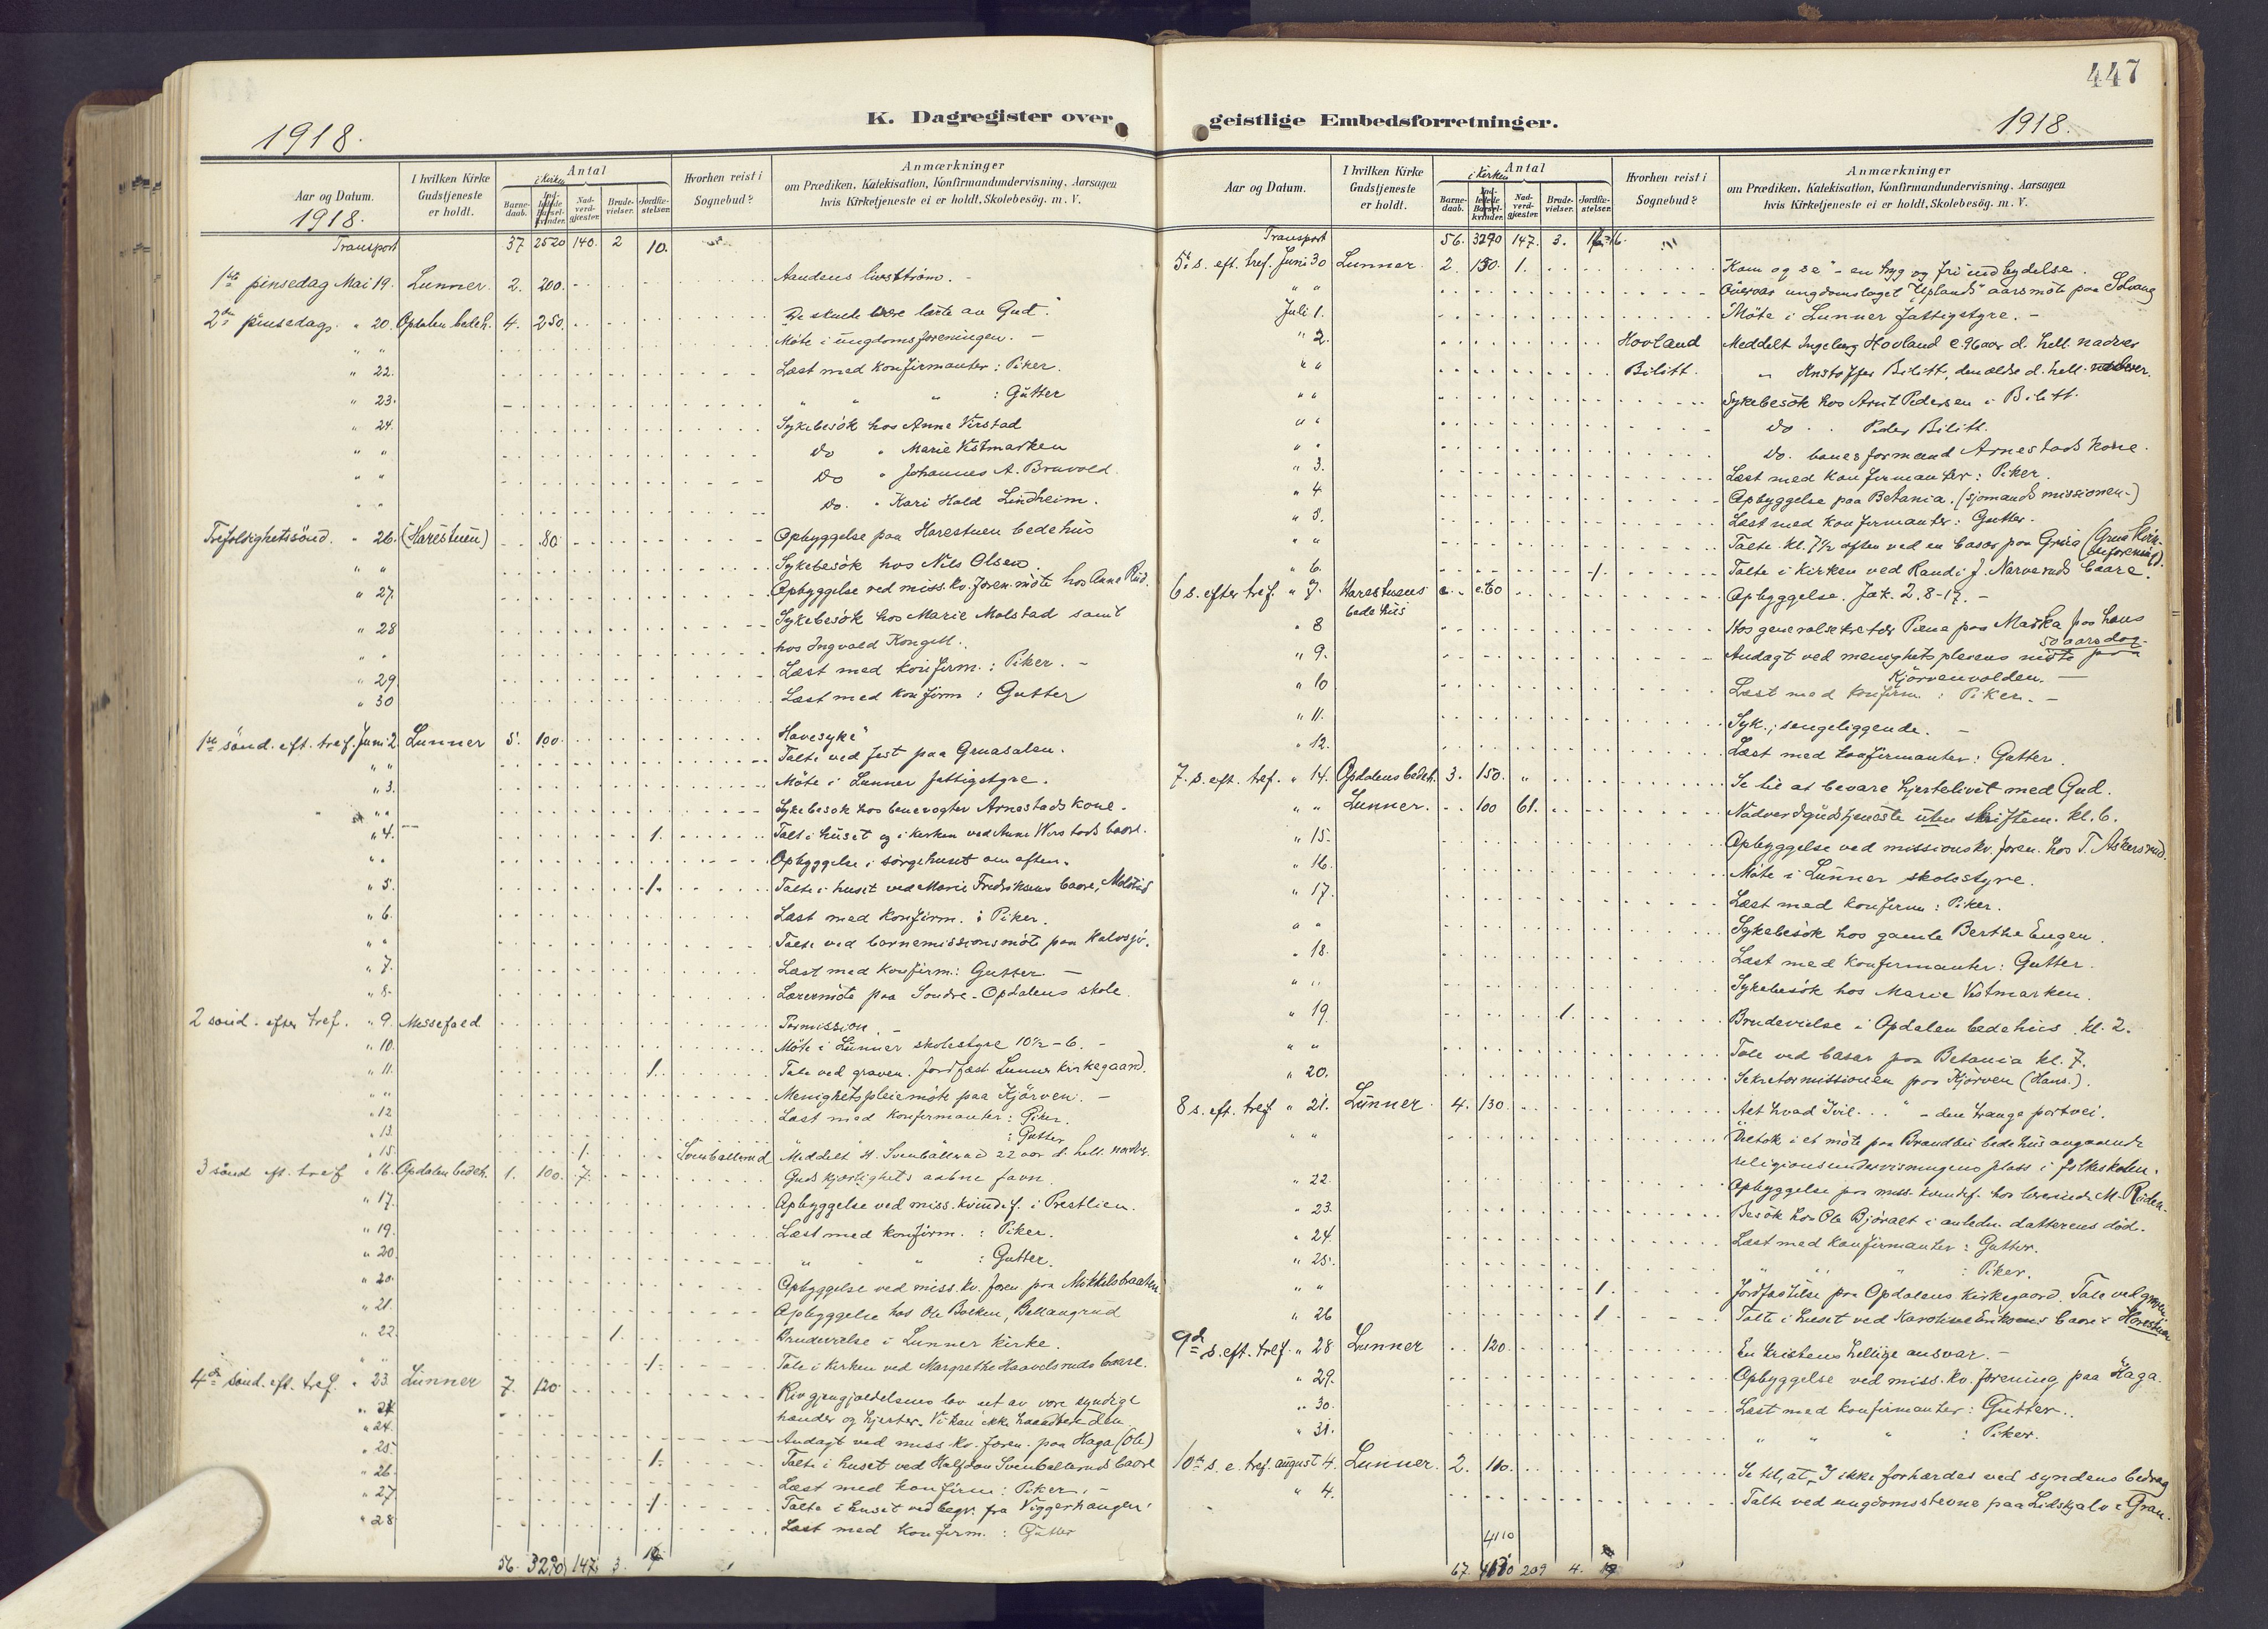 447
K. Dagregister over
1918.
Aar og Datum.
1918.
I hvilken Kirke Gudstjeneste er holdt.
Antal
i Kirken
Barne-daab.
Ind-ledede Barsel-kvinder.
Nad-verd-gjæster.
Brude-vielser.
Jordfæ-stelser.
Hvorhen reist i Sognebud?
Anmærkninger
om Prædiken, Katekisation, Konfirmandundervisning, Aarsagen
hvis Kirketjeneste ei er holdt, Skolebesøg. m. V.
Transport 37 2520 140. 2 10.
1ste pinsedag Mai 19. Lunner. 2. 200. Aandens livsström. -
2den pinsedag. " 20. Opdalen bedeh. 4. 250. "De skulle være lærte av Gud."
" " Möte i ungdomsforeningen. -
" 22. Læst med konfirmanter: Piker.
" 23. " " " : Gutter
" 24. Sykebesök hos Anne Virstad
" " Do " Marie Vestmarken
" " Do " Johannes A. Bruvold
" " Do. " Kari Hald Lindheim.
Trefoldighetssönd. " 26. (Harestuen) 80 Opbyggelse paa Harestuen bedehus
" " Sykebesök hos Nils Olsen.
" 27. Opbyggelse ved miss.kv.foren.möte hos Anne Rud.
" 28 Sykebesök hos Marie Molstad samt
" " hos Ingvald Kongell.
" 29 Læst med konfirm.: Piker. -
" 30 Læst med konfirm: Gutter
1ste sönd. eft. tref. Juni 2. Lunner 5. 100. Havesyke"
" " Talte ved fest paa Gruasalen.
" 3. Möte i Lunner fattigstyre.
" " Sykebesök hos banevogter Arnestads kone.
" 4. 1. Talt i huset og i kirken ved Anne Wirstads baare.
" " Opbyggelse i sörgehuset om aften.
" 5. 1. Talte i huset ved Marie Fredriksens baare, Molstad
" 6. Læst med konfirm.: Piker.
" " Talte ved barnemissionsmöte paa Kalvsjö.
" 7. Læst med konfirm.: Gutter. -
" 8. Lærermöte paa Söndre-Opdalens skole.
2 sönd. efter tref. " 9. Messefald Permission. -
" 10. Möte i Lunner skolestyre 10½-6. -
" 11. 1. Tale ved graven. Jordfæst. Lunner kirkegaard.
" " Menighetspleiemöte paa Kjörven. -
" 12 Læst med konfirmanter: Piker.
" 13. : Gutter
" 15. 1. Svenballerud Meddelt H. Svenballerud 22 aar d. hell. nadver.
3 sönd eft. tref. " 16. Opdalen bedeh. 1. 100. 7. Guds kjærlighets aabne favn.
" 17. Opbyggelse ved miss.kvindef. i Prestlien.
" 19. Læst med konfirm.: Piker.
" 20 " " : Gutter.
" 20. Opbyggelse ved miss.kv.foren paa Mikkelsbraaten
" 21. Opbyggelse hos Ole Bakken, Bellangrud
" 22. 1. Brudevielse i Lunner kirke.
" " 1. Tale i kirken ved Margrethe Haavelsruds baare.
4de sönd. eft. tref. " 23. Lunner 7. 120. Riv gjengjældelsens lov ut av vore syndige
hænder og hjerter. Vi kan ikke haandtere den
" 24. Andagt ved miss.kv.foren. paa Haga (Ole)
" 25. 1. Talte i huset ved Halfdan Svenballeruds baare
" 26. Læst med konfirm: Piker. -
" 27. 1. Talte i huset ved begr. fra Viggerhangen
" 28 Læst med konfirm.: Gutter
56. 3290 147. 3.
geistlige Embedsforretninger.
1918.
Aar og Datum.
I hvilken Kirke Gudstjeneste er holdt.
Antal
i Kirken
Barne-daab.
Ind-ledede Barsel-kvinder.
Nad-verd-gjæster.
Brude-vielser.
Jordfæ-stelser.
Hvorhen reist i Sognebud?
Anmærkninger
om Prædiken, Katekisation, Konfirmandundervisning, Aarsagen
hvis Kirketjeneste ei er holdt, Skolebesøg. m. V.
Transport 56. 3290 147. 3. 16.
5te s. eft. tref. Juni 30 Lunner. 2. 150. 1. "Kom og se" - en tryg og fri indbydelse.
" " Overvar ungdomslaget "Uplands" aarsmöte paa Solvang
Juli 1. Möte i Lunner fattigstyre. -
" 2. Hovland Meddelt Ingeborg Hovland e. 96 aar d. hell. nadver
" " Bilitt. " Kristoffer Bilitt, den ældre d. hell. nadver.
" " Sykebesök hos Arnt Pedersen i Bilitt.
" " Do. Peder Bilitt.
" " Do. baneformand Arnestads kone.
" 3. Læst med konfirmanter: Piker.
" 4 Opbyggelse paa Betania. (sjömandsmissionen.)
" 5. Læst med konfirmanter: Gutter.
" " Talte kl. 7½ aften ved en basar paa Grua
" 6. 1. Talte i kirken ved Randi J. Narveruds baare.
6 s. efter tref. " 7. Harestuens bedehus 60 Opbyggelse. Jak. 2. 8-17. -
" 8 Hos generalsekretær paa hans
50 aarsdag.
" 9. Andagt ved menighetspleiens möte paa
Kjörvenvolden. -
" 10 Læst med konfirm: Piker. -
" 11. Syk; sengeliggende. -
" 12. Læst med konfirmanter: Gutter.
7. s. eft. tref. " 14. Opdalens bedeh. 3. 150. " Se til at bevare hjertelivet med Gud.
" " Lunner. 100 61. Nadverdgudstjeneste uten skriftem. kl. 6.
" 15. Opbyggelse ved missionskv.foren. hos T. Askersrud.
" 16. Möte i Lunner skolestyre.
" 17. Læst med konfirm: Piker.
" " Sykebesök hos gamle Berthe Engen.
" 18. Læst med konfirmanter: Gutter.
" " Sykebesök hos Marie Vestmarken.
" 19 1. Brudevielse i Opdalen bedehus kl. 2.
" " Tale ved basar paa Betania kl. 7.
" 20. Sekretærmissionen paa Kjörven (Hans.).
8 s. eft. tref. " 21. Lunner. 4. 130. Alt hvad I vil..." - den trange portvei.
" " Deltok i et möte paa Brandbu bedehus angaaende
religionsundervisningens plass i folkeskolen.
" 22. Opbyggelse paa miss.kvindef. hos lærerinde M. Ruden.
" 23. Besök hos Ole Björalt i anledn. datterens död.
" 24. Læst med konfirmanter: Gutter.
" 25. " " " : Piker.
" " 1. Jordfæstelse paa Opdalens kirkegaard. Tale ved graven
" 26 1 Talte i huset ved Karoline Eriksens baare i Harestuen
9de s. eft. tref. " 28 Lunner 120. En kristens hellige ansvar. -
" 29. Opbyggelse ved miss.kv.forening paa Haga.
" 30. Læst med konfirmanter: Gutter.
" 31. " " " : Piker.
10de s. e. tref. august 4. Lunner. 2. 110. Se til, at I ikke forhærdes ved syndens bedrag
" 4. Talte ved ungdomsstevne paa Lidskjalv i Gran.
4110
67. 209 4.